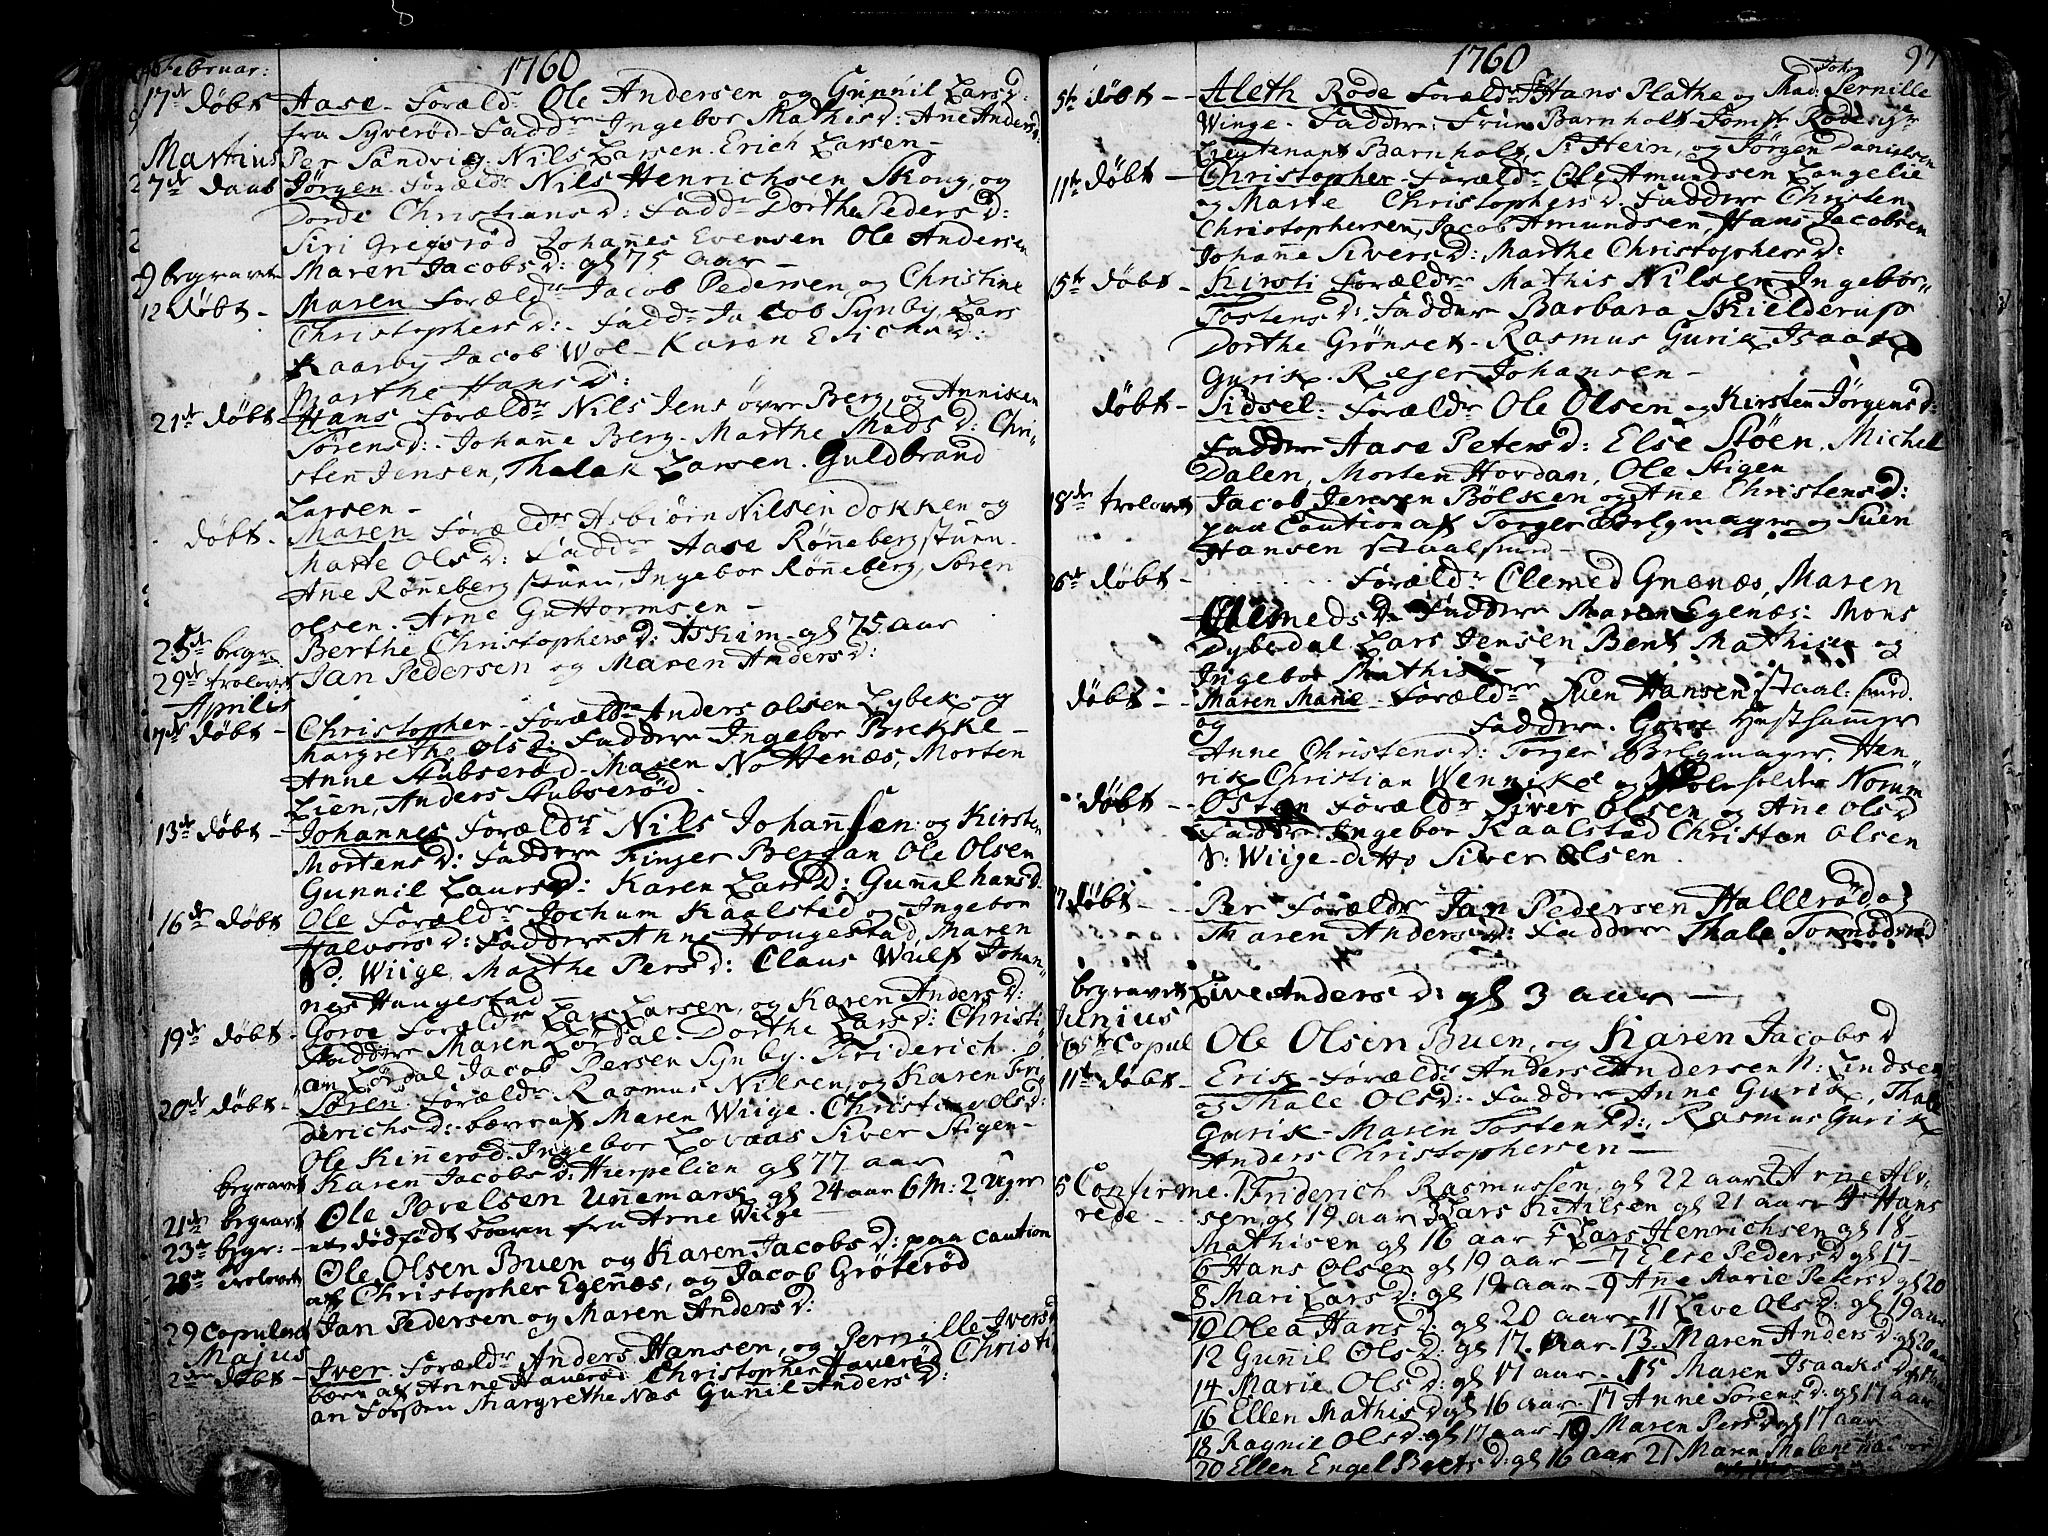 Februar: 1760
17de døbt Aase. Foræld: Ole Andersen og Gunnil Larsd:
fra Syverød. Fadd: Ingebor Mathisd: Ane Andersd:
Martius Per Sandvig. Nils Larsen. Erich Larsen
7de Jørgen. Foræld: Nils Henrichsen Skoug, og
Dorde Christiansd: Fadd: Dorthe Pedersd:
Siri Gregsrød Johannes Evensen Ole Andersen
9 begravet Maren Jacobsd: gl 75 aar
12 døbt Maren Foræld: Jacob Pedersen, og Christine
Christophersd: Fadd: Jacob Synby, Lars
Kaarby Jacob Wol Karen Erichsd:
Marthe Hansd:
21de døbt Hans Foræld: Nils Jens øvre Berg, og Anniken
Sørensd: Johanne Berg. Marthe Madsd: Chri
sten Jensen, Thalak Larsen. Guldbrand
Larsen
døbt Maren Foræld: Asbiørn Nilsen dokken og
Marte Olsd: Fadd: Aase Rønneberg stuen.
Ane Rønneberg stuen, Ingebor Rønneberg, Søren
olsen. Arne Guttormsen
25de begr: Berthe Christophersd: Askim gl 75 aar
29de trolovet Jan Pedersen og Maren Andersd:
Aprilis
7de døbt Christopher Foræld: Anders Olsen Lybek og
Margrethe Olsd: Fadder Ingebor Brekke
Anne Stubserød Maren Nottenæs, Morten
Lien, Anders Stubserød.
13de døbt Johannes Foræld: Nils Johansen og Kirsten
Mortensd: Fadder Ringer Bergan Ole Olsen
Gunnil Laursd: Karen Larsd: Gunnil hansd:
16de døbt Ole Foræld: Jochum Kaalstad og Ingebor
Halvorsd: Fadder Anne Hougestad Maren
P: Wiige, Marthe Persd: Claus Wulf Johan
nes Hougestad
19de døbt Goroe Foræld: Lars Larsen, og Karen Andersd:
Fadder Maren Lørdal. Dorthe Larsd: Christi
an Lørdal Jacob Persen Synby. Friderich
20de døbt Søren. Foræld: Rasmus Nilsen, og Karen Fri
derichsd: bærer af Maren Wiige. Christi Olsd:
Ole Kinnerød. Ingebor Lovaas Siver Stigen
begravet Karen Jacobsd: Hierpelien gl 77 aar
21de begravet Ole Povelsen Unnemark gl 24 aar 6 M: 2 Uger
23de begr: et dødfødt barn fra Arne Wiige
28de trolovet Ole Olsen Buen og Karen Jacobsd: paa caution
af Christopher Egenæs, og Jacob Grøterød
29 Copuleret Jan Pedersen og Maren Andersd:
Majus
døbt Iver. Foræld: Anders Hansen, og Pernille Iversd
bæren af Anne Haverød Christopher Haverød Christi
an Forsøen Margrethe Næs Gunil Andersd:
1760 97
5te døbt Aleth Rode Foræld: Hans Plathe og Mad: Pernille
Winge. Fadder: Frue Barnholt Jomfr Rode
Lieutenant Barnholt, Sr Hein, og Jørgen Danielsen
11te døbt Christopher Foræld: Ole Amundsen Langelie
og Marte Christophersd. Fadder Christen
Christophersen, Jacob Amundsen, Hans Jacobsen
Johanne Siversd: Marthe Christophersd:
15te døbt Kirsti Foræld: Mathis Nilsen Ingebor
Tostensd: Fadder Barbara Skielderup
Dorthe Grønset. Rasmus Gurik Isaak
Gurik. Reier Johansen
døbt Sidsel: Foræld: Ole Olsen og Kirsten Jørgensd:
Fadder Aase Petersd: Else Støen, Michel
Dalen, Morten Hovdan, Ole Stigen
18de trolovet Jacob Jensen Bølsken og Ane Christensd:
paa Caution af Torger Belgmager og Suen
Hansen staalsmed
26de døbt Foræld: Clemed Gnenæs, Maren
Clemedsd. Fadder Maren Egenæs: Mons
Dybedal Lars Jensen Bent Mathisen og
Ingebor Mathisd
døbt Maren Marie Foræld: Suen Hansen staal: smed
og Fadder. Goroe Husthammer
Anne Christensd: Torger Belgmager, Hen
rik Christian Wennike og Skoleholder Norum
døbt Osten Foræld: Siver Olsen og Ane Olsd
Fadder Ingebor Kaalstad Christen Olsen
N: Wiige ditto Siver Olsen
døbt Per Foræld: Jan Pedersen Hallerød og
Maren Andersd: Fadder Thale Tormodsrød
begravet Live Andersd: gl 3 aar
Junius
Copul Ole Olsen Buen, og Karen Jacobsd
11te døbt Erik Foræld: Anders Andersen N: Lindsen
og Thale Olsd: Fadder Anne Gurik, Thale
Gurik Maren Tostensd: Rasmus Gurik
Anders Christophersen
Confirme 1 Friderich Rasmussen, gl 22 aar 2 Arne Alv
rede sen gl 19 aar 3 Lars Ketilsen gl 21 aar 4 Hans
Mathisen gl 16 aar 5 Lars Henrichsen gl 18
6 Hans Olsen gl 19 aar 7 Else Pedersd gl 17
8 Mari Larsd: gl 19 aar 9 Ane Marie Petersd gl 20
10 Olea Hansd: gl 20 aar 11 Live Olsd: gl 19 aar
12 Gunnil Olsd: gl 17 aar 13 Maren Andersd gl 20 aar
14 Marie Olsd: gl 17 aar 15 Maren Isaaksd
16 Ellen Mathisd gl 16 aar 17 Anne Sørensd: gl 17 aar
18 Ragnil Olsd: gl 17 aar 19 Maren Persd gl 17 aar
20 Ellen Engelbretsd: gl 16 aar 21 Maren Malene